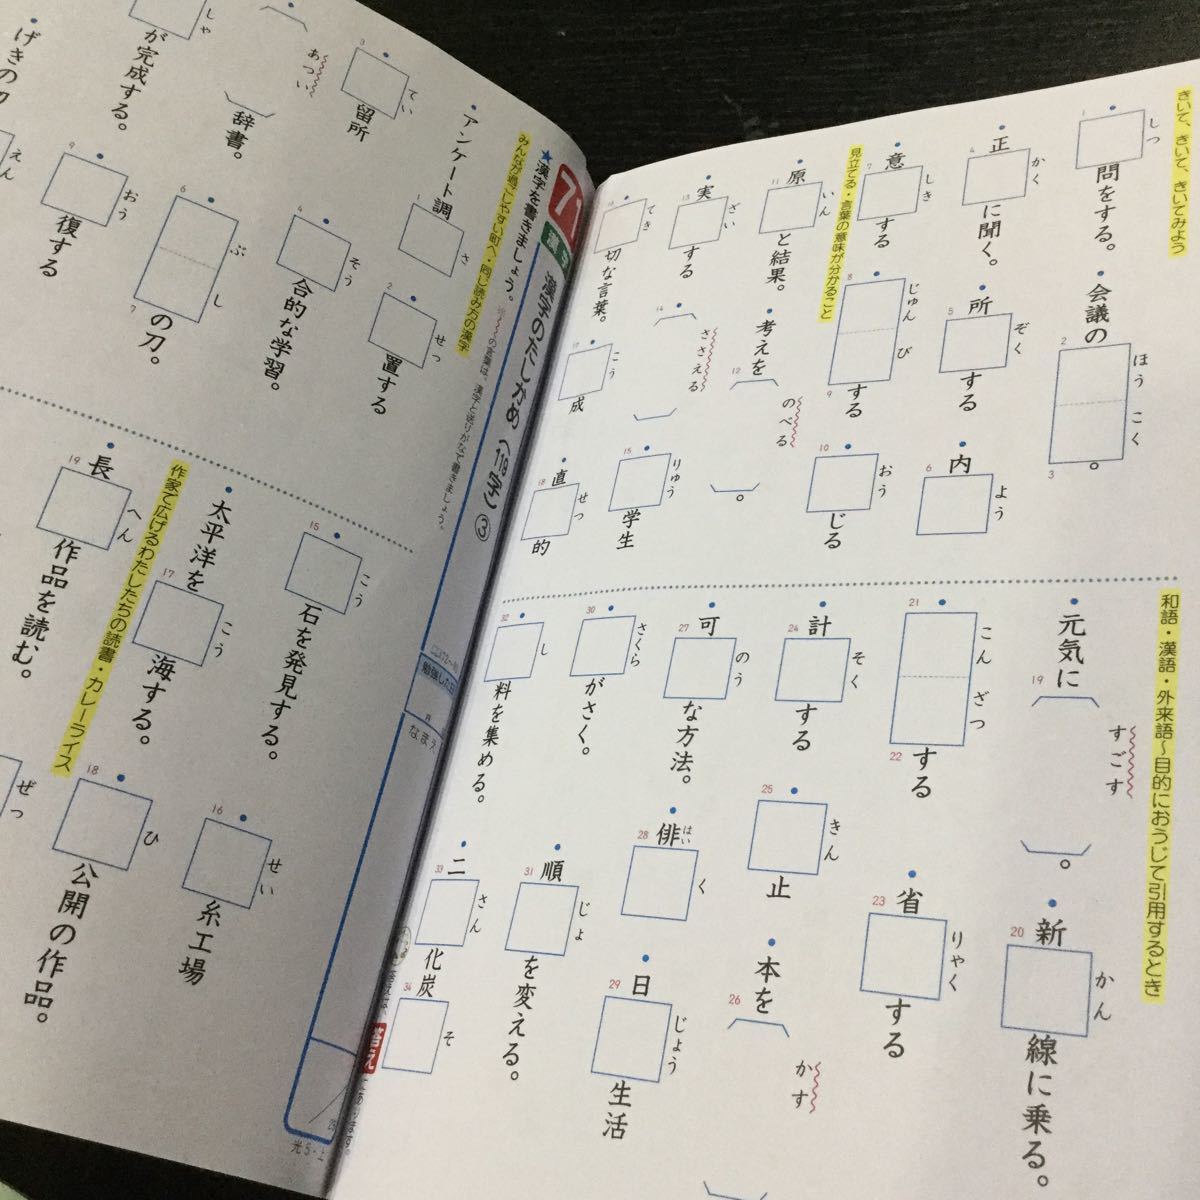 きいて、きいて、きいてみよう
1 しつ 問をする。
会議の 2 ほう こく 3 。
4 正 かく に聞く。
5 所 ぞく する
6 内 よう
7 意 しき する
8 じゅん び 9 する
10 おう じる
見立てる・言葉の意味が分かること
11 原 いん と結果。
考えを 12 のべる 。
13 実 ざい する
14 ささえる
15 りゅう 学生
16 てき 切な言葉。
17 こう 成
18 直 せつ 的
和語・漢語・外来語〜目的におうじて引用するとき
元気に 19 すごす 。
20 新 かん 線に乗る。
21 こん ざつ 22 する
23 省 りゃく する
24 計 そく する
25 きん 止
本を 26 かす
27 可 のう な方法。
28 俳 はい く
29 日 じょう 生活
30 さくら がさく。
31 順 じょ を変える。
32 し 料を集める。
33 二 さん 化炭 34 そ
答え
71
漢字のたしかめ〈119字〉③
勉強した日
月
なまえ
光5・上
★漢字を書きましょう。
の言葉は、漢字と送りがなで書きましょう。
みんなが過ごしやすい町へ・同じ読み方の漢字
アンケート調 1 さ
2 せっ 置する
3 てい 留所
4 そう 合的な学習。
あつい 辞書。
6 ぶ し 7 の刀。
しゃ が完成する。
9 おう 復する
げきの
えん
作家で広げるわたしたちの読書・カレーライス
15 こう 石を発見する。
16 せい 糸工場
太平洋を 17 こう 海する。
18 ひ 公開の作品。
19 長 へん 作品を読む。
ぜっ